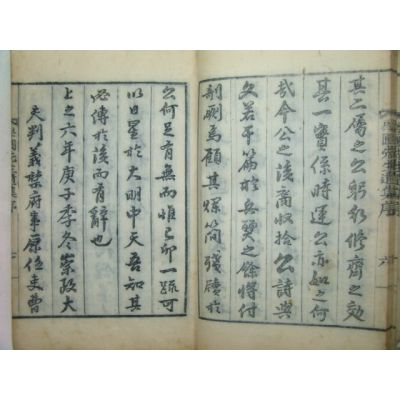 其二屬之公躬行修齊之效
其一實係時運公亦如之何
哉今公之後裔收拾公詩與
文若干篇於兵燹之餘將付
剞劂焉顧其爛簡殘牘於
公何足有無而惟己卯一疏可
以日星於大明中天吾知其
必傳於後而有辭也
上之六年庚子季冬崇政大
夫判義禁府事原任吏曹